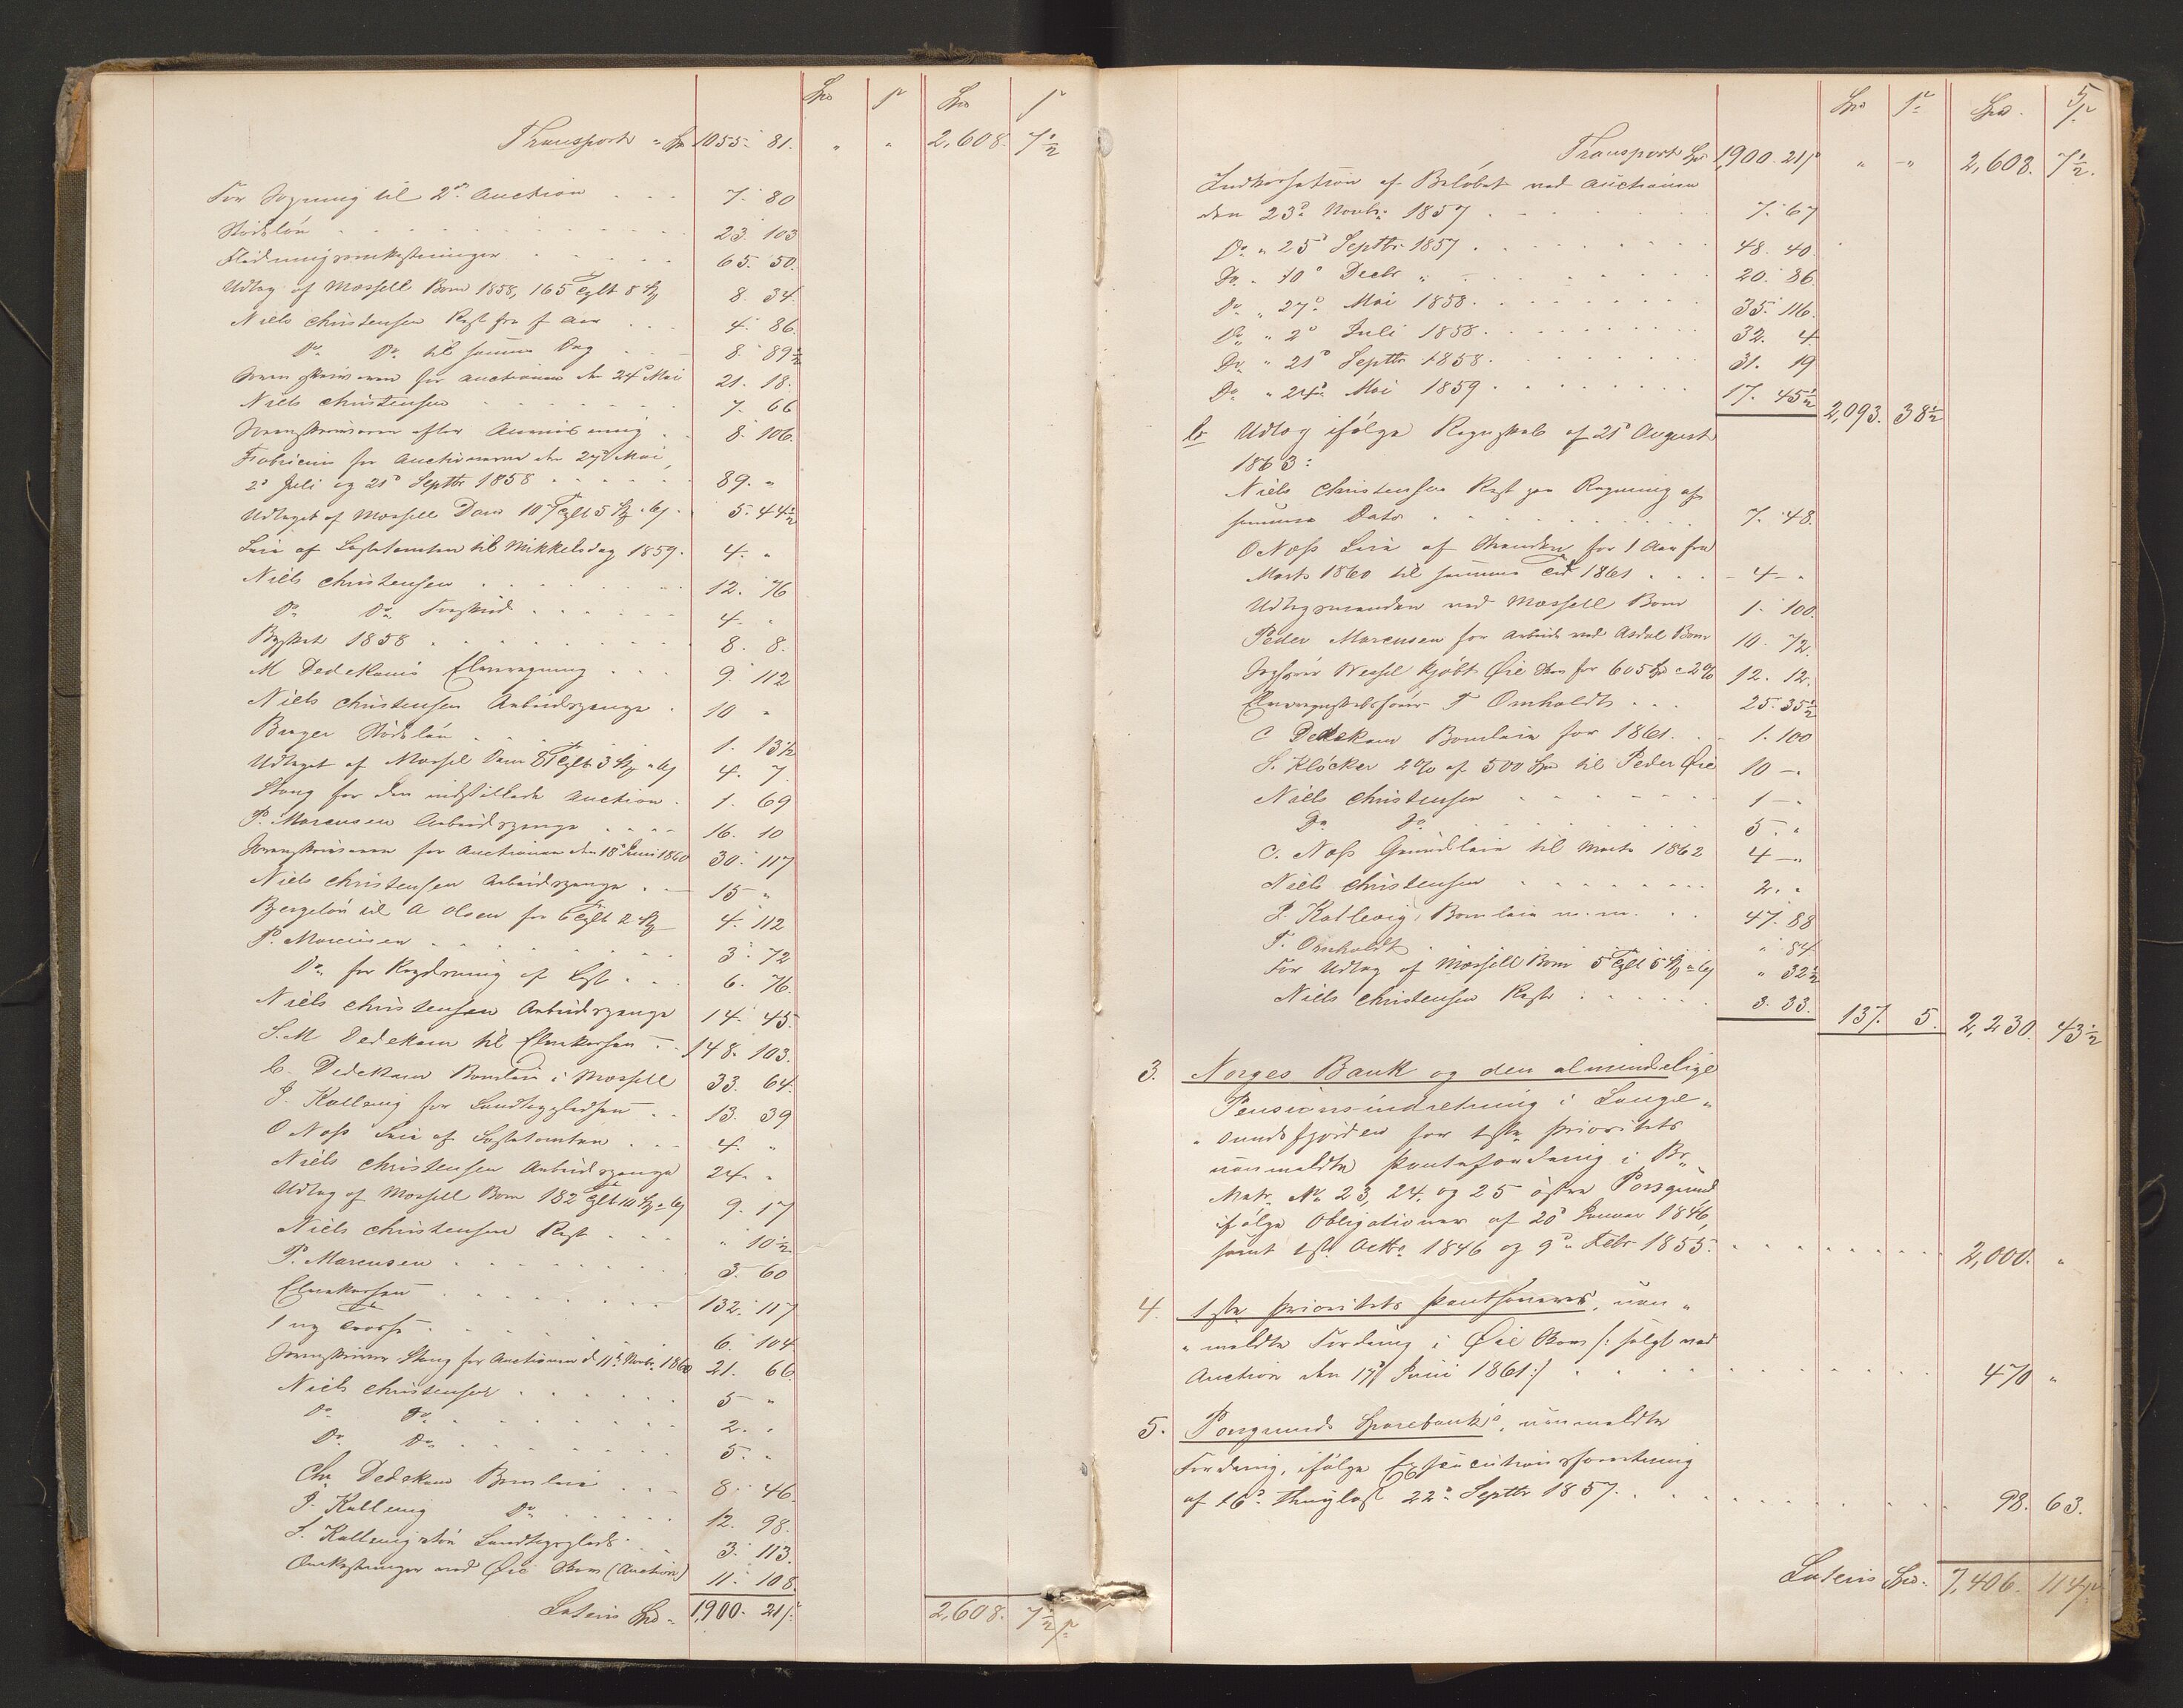 Spd ß Spd ß
Transport " Sp 1055. 81. " " 2,608. 7½
For Søgning til 2den Auction 7. 80
Stødsløn 23. 103
Flødningsomkostninger 65. 50.
Udlæg af Mossell Bom 1858, 165 Tylt 8 St 8. 34.
Niels Christensen Rest fra f Aar 4. 86.
Do Do til samme Dag 8. 89½
Sorenskriveren for Auctionen den 24de Mai 21. 18.
Niels Christensen 7. 66
Sorenskriveren efter Anvisning 8. 106.
Fabricius for Auctionerne den 27de Mai,
2d Juli og 21d Septbr 1858 89. "
Udlæget af Mossell Dam 107 Tylt 5 St a 6ß 5. 44½
Leie af Lastetomten til Mikkelsdag 1859. 4. "
Niels Christensen 12. 76
Do Do Forskud 4. "
Byskat 1858 8. 8.
M Dedekams Elveregning 9. 112
Niels Christensen Arbeidspenge 10 "
Berger Stødsløn 1. 13½
Udlæget af Mossel Dam 81 Tylt 3 St a 6ß 4. 7.
Skaug for den indstillede Auction 1. 69
P. Marcusen Arbeidspenge 16. 10
Sorenskriveren for Auctionen den 18d Juni 1860 30. 117
Niels Christensen Arbeidspenge 15 "
Bergeløn til A Olsen for 6 Tylt 2 St 4. 112
P. Marcusen 3. 72
Do for Rødning af Last 6. 76.
Niels Christensen Arbeidspenge 14. 45.
S. M Dedekam til Elvekassen 148. 103.
C. Dedekam Bomleie i Mossell 33. 64.
J. Kallevig for Landtogpladsen 13. 39
O Næss Leie af Lastetomten 4. "
Niels Christensen Arbeidspenge 24. "
Udlæg af Mossell Bom 182 Tylt 10 St a 6ß 9. 17
Niels Christensen Rest " 10½
P. Marcusen 3. 60
Elvekassen 132. 117
1 ny Trosse 6. 104
Sorenskriver Skaug for Auctionen d 11te Novbr. 1860 21. 66.
Niels Christensen 5 "
Do Do 2. "
Do Do 5. "
Chr Dedekam Bomleie 8. 46.
J. Kallevig Do 12. 98.
S. Kallevig &amp; Søn Landtogplads 3. 113.
Omkostninger ved Øie Skov (Auction) 11. 108.
Lateris Spd " 1,900. 21ß 2,608. 7½ß
5
Spd ß Spd. ß
Transport Spd 1,900. 21ß " " 2,608. 7½.
Indkassation af Beløbet ved Auctionen
den 23d Novbr. 1857 7. 67
Do " 25d Septbr 1857 48. 40.
Do " 10d Decbr " 20. 86
Do " 27d Mai 1858 35. 116.
Do " 2d Juli 1858 32. 4
Do " 21d Septbr 1858 31. 19
Do " 24d Mai 1859 17. 45½ 2,093. 38½
b. Udlæg ifølge Regnskab af 21d August
1863:
Niels Christensen Rest paa Regning af
samme Dato 7. 48.
O Næss Leie af Stranden for 1 Aar fra
Marts 1860 til samme Tid 1861 4 "
Udlægsmanden ved Mossell Bom 1. 100.
Peder Marcusen for Arbeide ved Asdal Bom 10. 72.
Wessel kjøbt Øie Skov for 605 Spd a 2% 12. 12.
Elveregnskabsfører T Omholdt 25. 35½
C Dedekam Bomleie for 1861. 1. 100
S. Kløcker 2% af 500 Spd til Peder Øie 10 "
Niels Christensen 1 "
Do Do 5. "
O. Næss Grundleie til Marts 1862 4 "
Niels Christensen 2. "
J. Kallevig, Bomleie m. m. 47. 88
T. Omholdt " 84
For Udlæg af Mossell Bom 5 Tylt 5 St a 6ß " 32½
Niels Christensen Rest 3. 33. 137. 5. 2,230. 43½
3. Norges Bank og den almindelige
Pensionsindretning i Lange"
"sundsfjorden for 1ste Prioritets
uanmeldte Pantefordring i Br.
Matr. No 23, 24. og 25 østre Porsgrund
ifølge Obligationer af 20d Januar 1846,
samt 1ste Octbr. 1846 og 9d Febr 1855. 2,000. "
4. 1ste Prioritets Panthavers, uan"
"meldte Fordring i Øie Skov /: solgt ved
Auction den 17d Juni 1861 :/ 470 "
5. Porsgrunds Sparebanks, uanmeldte
Fordring, ifølge Executionsforretning
af 16d thinglæst 22d Septbr 1857. 98. 63.
Lateris Spd. 7,406. 114ß